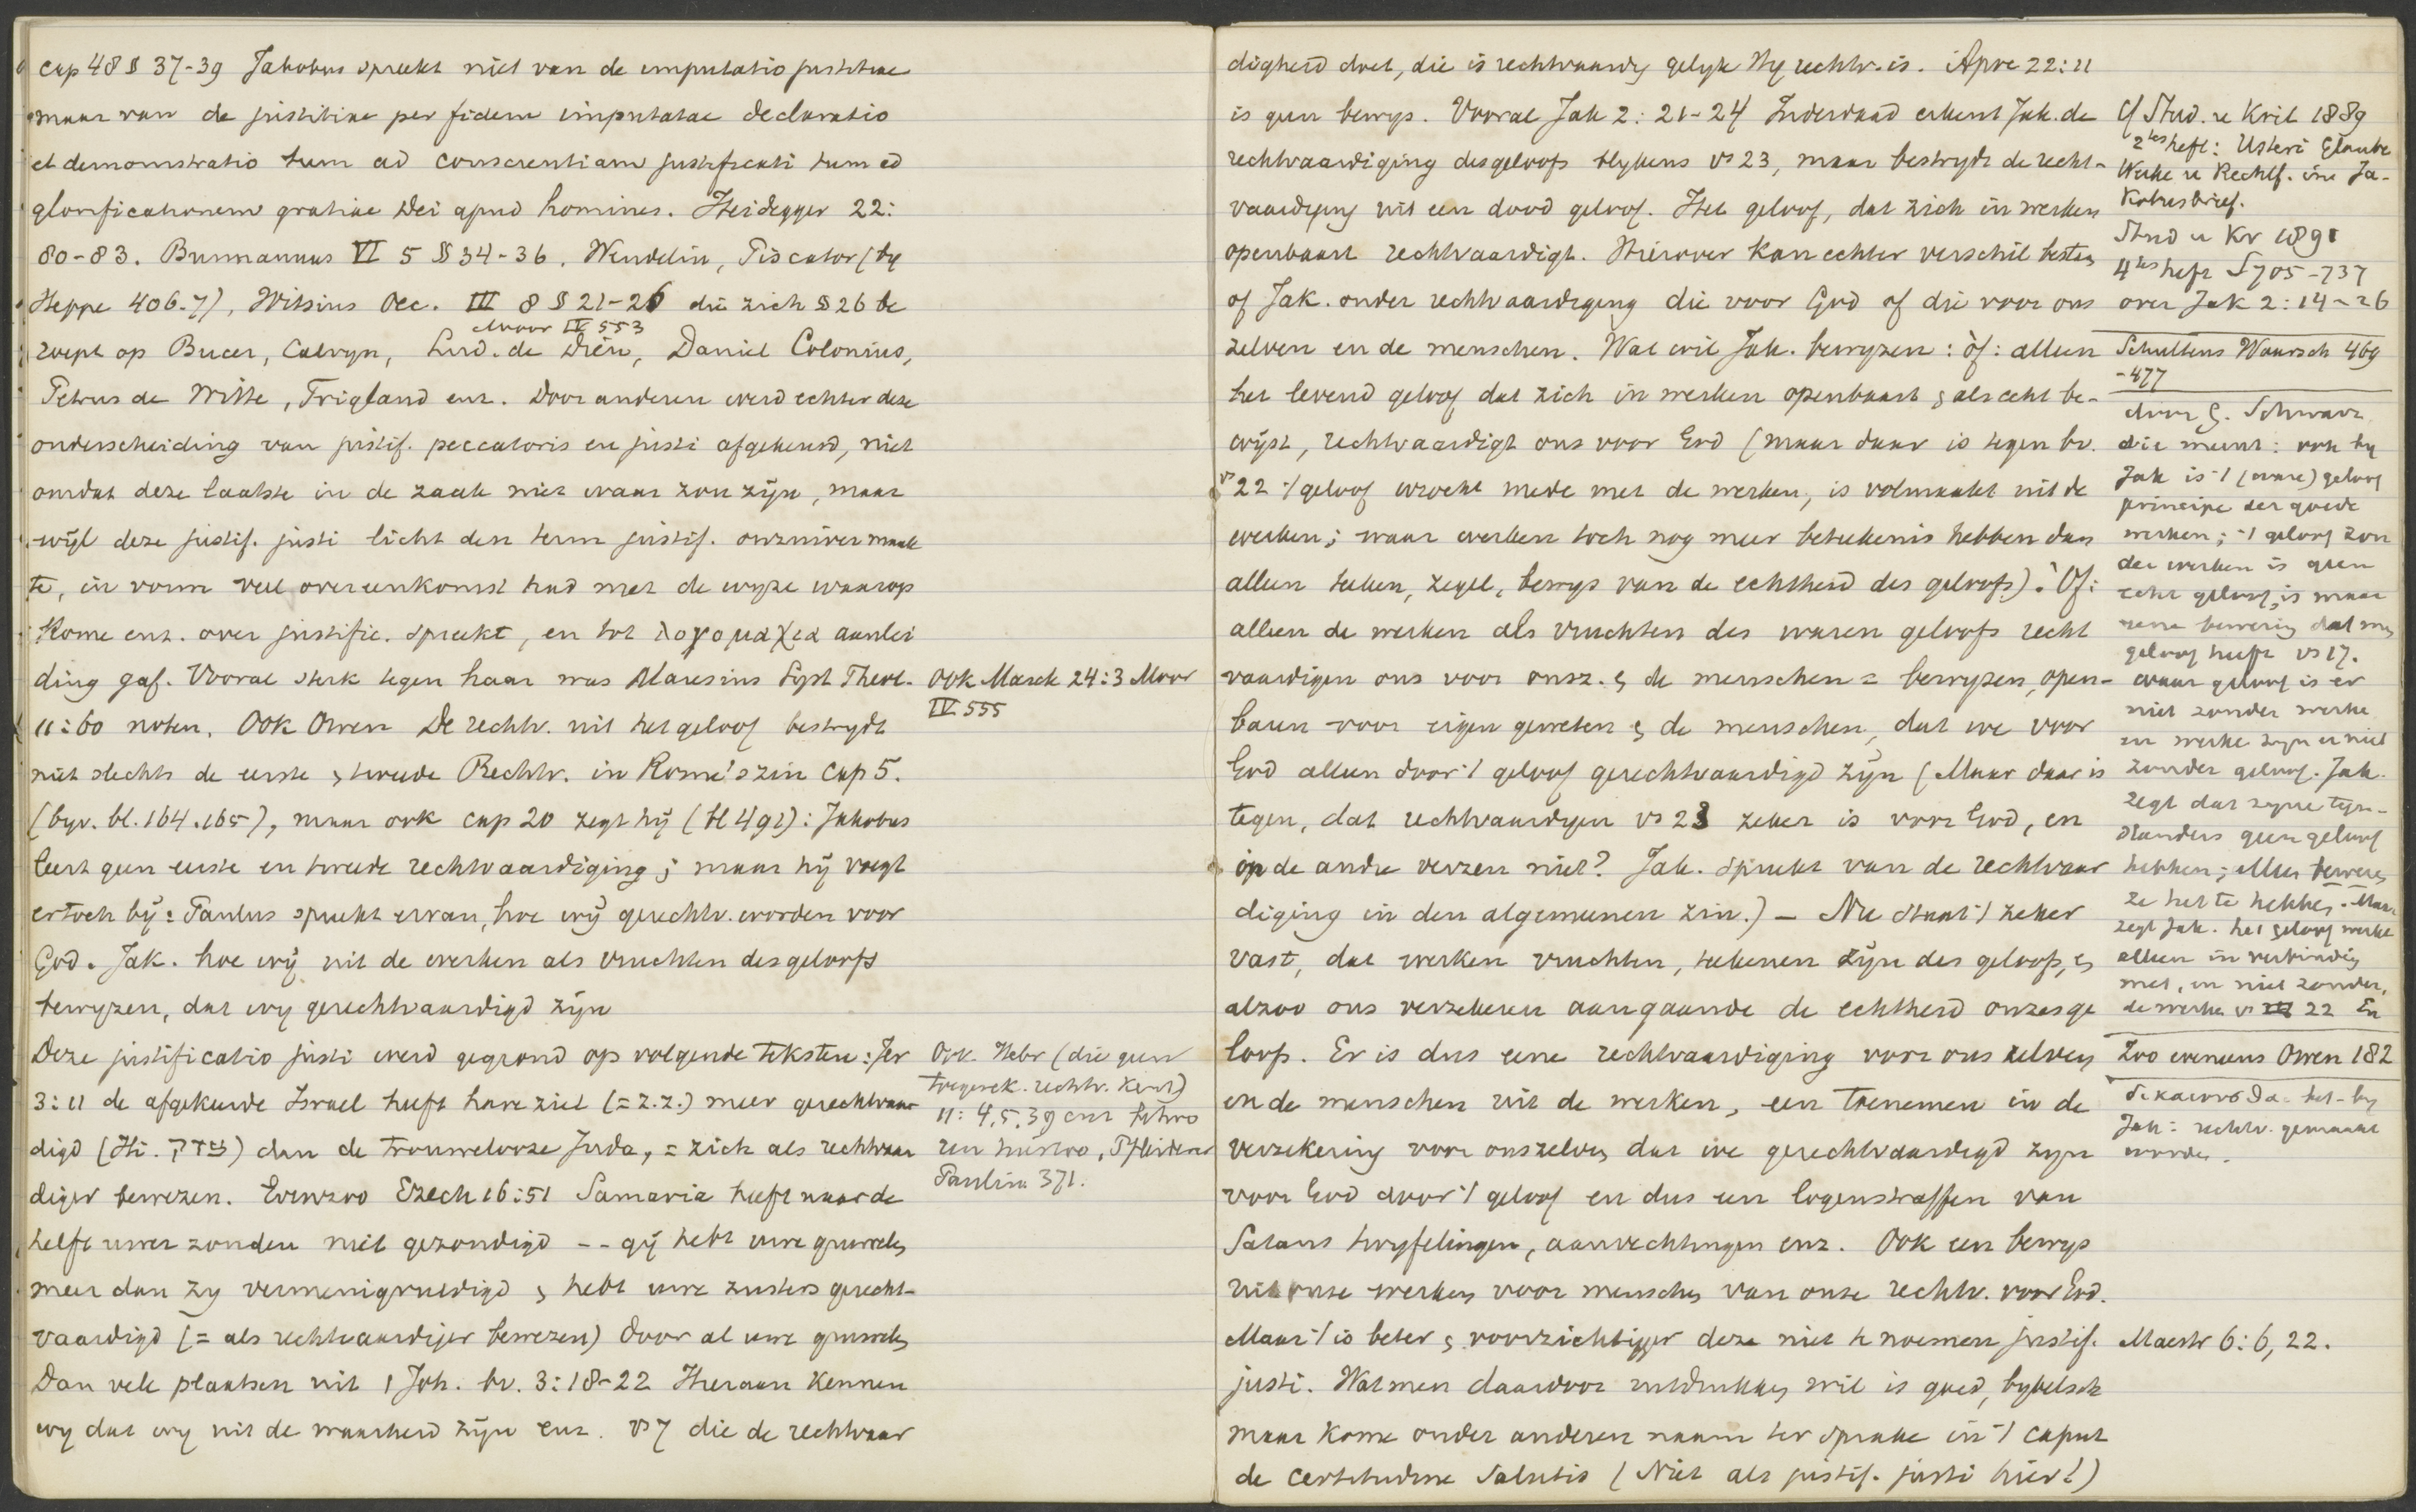 cap 48 § 37-39 Jakobus spreekt niet van de imputatio justitiae
maar van de justitiae per fidem imputatae declaratio
et demonstratio tum ad conscientiam justificati tum ad
glorificationem gratiae Dei apud homines. Heidegger 22:
80-83. Burmannus VI 5 §§ 34-36. Wendelin, Piscator (by
Heppe 406-7), Witsius Oec. III 8 § 21-26 die zich § 26 be
Moor IV 553
roept op Bucer, Calvyn, Lud. de Dieu, Daniel Colonius,
Petrus de Witte, Trigland enz. Door anderen werd echter deze
onderscheiding van justif. peccatoris en justi afgekeurd, niet
omdat deze laatste in de zaak niet waar zou zijn, maar
wijl deze justif. justi licht den term justif. onzuiver maak
te, in vorm veel overeenkomst had met de wyze waarop
Rome enz. over justific. spreekt, en tot λογομαχια aanlei
ding gaf. Vooral sterk tegen haar was Maresius Syst Theol.
11:60 noten. Ook Owen De rechtv. uit het geloof bestrydt
niet slechts de eerste & tweede Rechtv. in Rome's zin cap 5.
(byv. bl. 164.165), maar ook cap 20 zegt hij (bl 491): Jakobus
leert geen eerste en tweede rechtvaardiging; maar hij voegt
er toch bij: Paulus spreekt ervan, hoe wij gerechtv. worden voor
God. Jak. hoe wij uit de werken als vruchten des geloofs
bewyzen, dat wy gerechtvaardigd zijn
Deze justificatio justi werd gegrond op volgende teksten: Jer
3:11 de afgekeerde Israel heeft hare ziel (= z.z.) meer gerechtvaar
digd (Hi. צדקה) dan de trouwelooze Juda, = zich als rechtvaar
diger bewezen. Evenzoo Ezech 16:51 Samaria heeft naar de
helft uwer zonden niet gezondigd -- gij hebt uwe gruwelen
meer dan zy vermenigvuldigd & hebt uwe zusters gerecht-
vaardigd (= als rechtvaardiger bewezen) door al uwe gruwelen
Dan vele plaatsen uit 1 Joh. bv. 3:18-22 Hieraan kennen
wy dat wy uit de waarheid zijn enz. vs 7 die de rechtvaar
Ook Marck 24:3 Moor
IV 555
Ook Hebr (die geen
toegerek. rechtv. kent)
11:4,5,39 enz
Pfleiderer
Paulin 371.
digheid doet, die is rechtvaardig gelyk Hy rechtv. is. Apoc 22:11
is geen bewys. Vooral Jak 2:21-24 Inderdaad erkent Jak. de
rechtvaardiging des geloofs blykens vs 23, maar bestrydt de recht-
vaardiging uit een dood geloof. Het geloof, dat zich in werken
openbaart rechtvaardigt. Hierover kan echter verschil bestaan
of Jak. onder rechtvaardiging die voor God of die voor ons
zelven en de menschen. Wat wil Jak. bewyzen: òf: alleen
het levend geloof dat zich in werken openbaart & als echt be-
wijst, rechtvaardigt ons voor God (maar daar is tegen bv.
vs 22 't geloof wrocht mede met de werken, is volmaakt uit de
werken; waar werken toch nog meer beteekenis hebben dan
alleen teeken, zegel, bewys van de echtheid des geloofs). Of:
alleen de werken als vruchten des waren geloofs recht
vaardigen ons voor onsz. & de menschen = bewyzen, open-
baren voor eigen geweten & de menschen, dat we voor
God alleen door 't geloof gerechtvaardigd zijn (Maar daar is
tegen, dat rechtvaardigen vs 23 zeker is voor God, en
in de andre verzen niet? Jak. spreekt van de rechtvaar
diging in den algemeenen zin.) — Nu staat 't zeker
vast, dat werken vruchten, teekenen zijn des geloofs, &
alzoo ons verzekeren aangaande de echtheid onzes ge
loofs. Er is dus eene rechtvaardiging voor ons zelven
en de menschen uit de werken, een toenemen in de
verzekering voor onszelven dat we gerechtvaardigd zyn
voor God door 't geloof en dus een logenstraffen van
Satans twyfelingen, aanvechtingen enz. Ook een bewys
uit onze werken voor menschen van onze rechtv. voor God.
Maar 't is beter & voorzichtiger deze niet te noemen justif.
justi. Wat men daardoor uitdrukken wil is goed, bybelsch
maar kome onder anderen naam ter sprake in 't caput
de certitudine salutis (Niet als justif. justi hier!)
Cf Stud. u Krit 1889
2tes heft: Usteri Glaube
Werke u Rechtf. im Ja-
kobusbrief.
Stud u Kr 1891
4tes heft S 705-737
over Jak 2:14-26
Schultens Waarsch 469
-477
door G. Schwarz
die meent: ook by
Jak is 't (ware) geloof
principe der goede
werken; 't geloof zon
der werken is geen
echt geloof, is maar
eene bewering dat men
geloof heeft vs 17.
waar geloof is er
niet zonder werke
en werke zyn er niet
zonder geloof. Jak.
zegt dat zyne tegen-
standers geen geloof
hebben; alleen beweren
ze het te hebben. Maar
zegt Jak. het geloof werkt
alleen in verbinding
met, en niet zonder,
de werke vs 22 En
Zoo eveneens Owen 182
δικαιουσθαι bet. by
Jak: rechtv. gemaakt
worden.
Maestr 6:6,22.